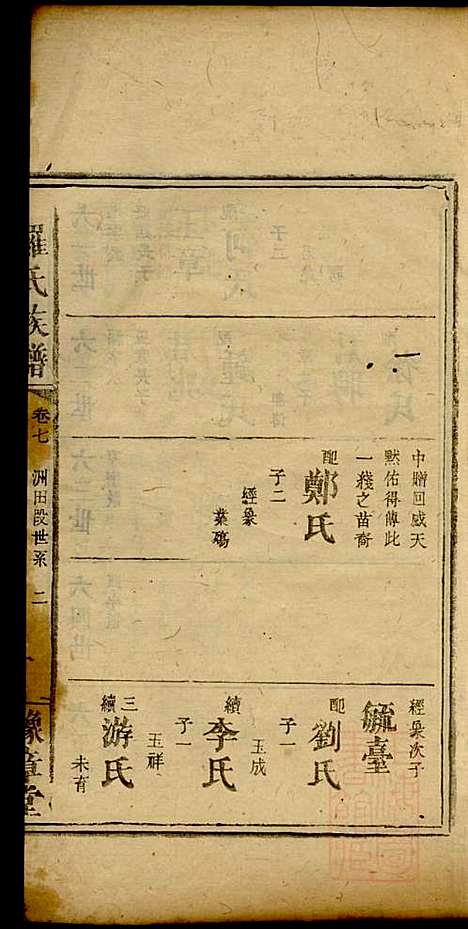 中贈回感天
黙佑得傳此
一綫之苗裔
配
鄭氏
子二
經象
業瑒
經象次子
毓臺
配
劉氏
子一
玉成
續
李氏
子一
玉祥
三
續
游氏
未育
羅氏族譜
卷七
洲田段世系
二
豫章堂